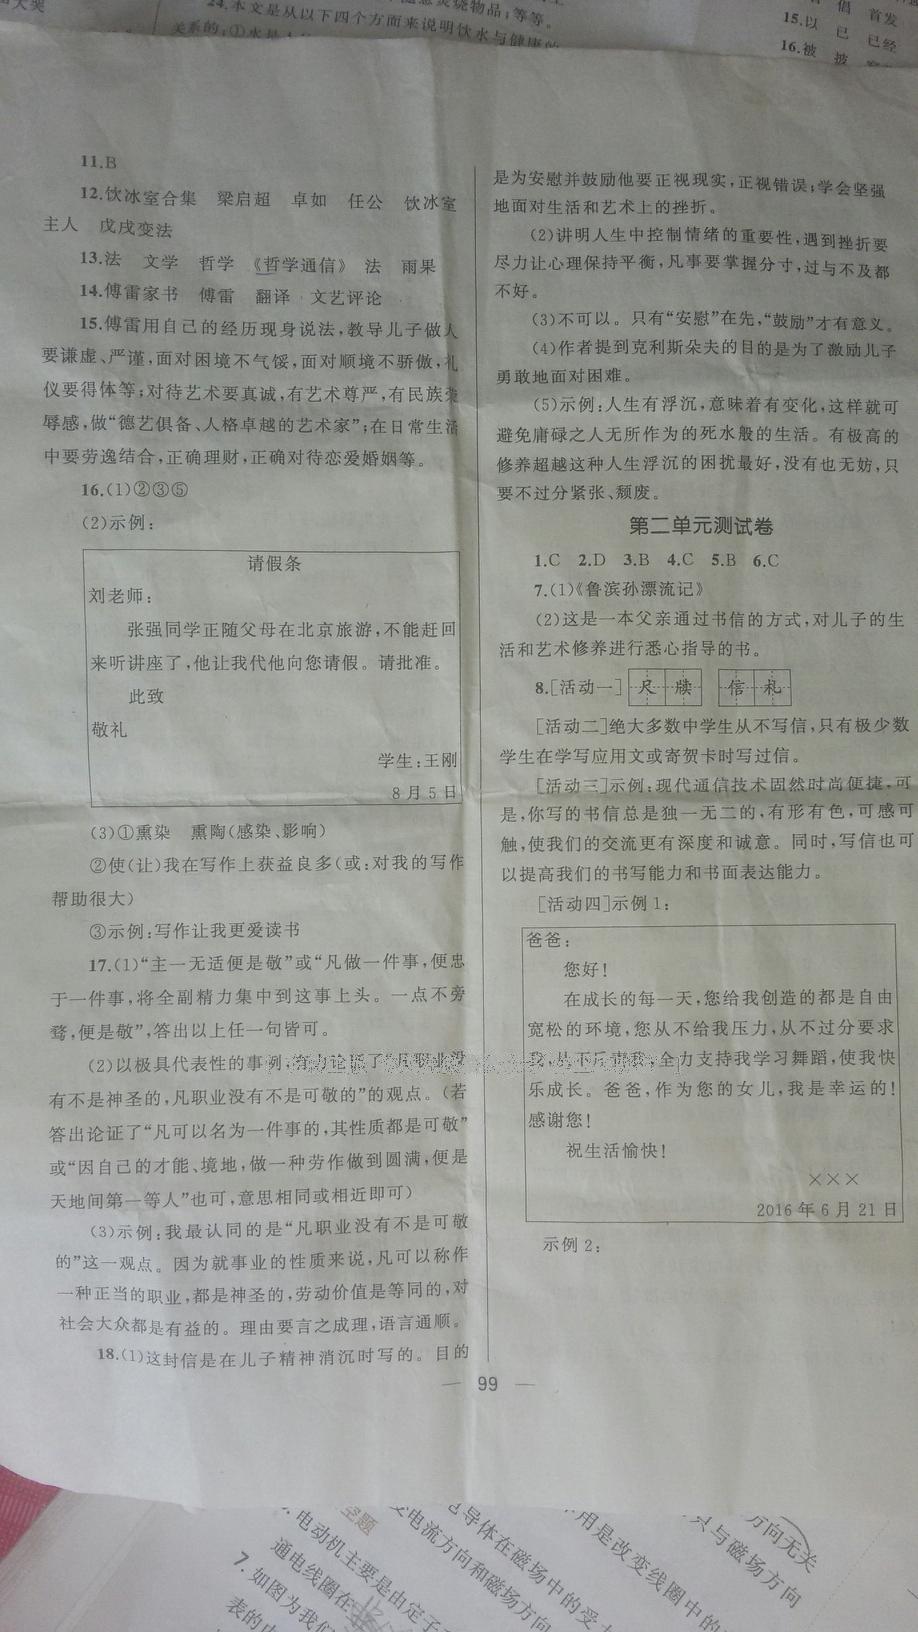 24.本文是从以下四个方面来说明饮水与健康的
15.以 已 已经
11.B
12.饮冰室合集 梁启超 卓如 任公 饮冰室
主人 戊戌变法
13.法 文学 哲学 《哲学通信》 法 雨果
14.傅雷家书 傅雷 翻译 文艺评论
15.傅雷用自己的经历现身说法,教导儿子做人
要谦虚、严谨,面对困境不气馁,面对顺境不骄傲,礼
仪要得体等;对待艺术要真诚,有艺术尊严,有民族荣
辱感,做“德艺俱备、人格卓越的艺术家”;在日常生活
中要劳逸结合,正确理财,正确对待恋爱婚姻等。
16.(1)②③⑤
(2)示例:
请假条
刘老师:
张强同学正随父母在北京旅游,不能赶回
来听讲座了,他让我代他向您请假。请批准。
此致
敬礼
学生:王刚
8月5日
(3)①熏染 熏陶(感染、影响)
②使(让)我在写作上获益良多(或:对我的写作
帮助很大)
③示例:写作让我更爱读书
17.(1)“主一无适便是敬”或“凡做一件事,便忠
于一件事,将全副精力集中到这事上头。一点不旁
骛,便是敬”,答出以上任一句皆可。
(2)以极具代表性的事例,有力论证了“凡职业没
有不是神圣的,凡职业没有不是可敬的”的观点。(若
答出论证了“凡可以名为一件事的,其性质都是可敬”
或“因自己的才能、境地,做一种劳作做到圆满,便是
天地间第一等人”也可,意思相同或相近即可)
(3)示例:我最认同的是“凡职业没有不是可敬
的”这一观点。因为就事业的性质来说,凡可以称作
一种正当的职业,都是神圣的,劳动价值是等同的,对
社会大众都是有益的。理由要言之成理,语言通顺。
18.(1)这封信是在儿子精神消沉时写的。目的
是为安慰并鼓励他要正视现实,正视错误;学会坚强
地面对生活和艺术上的挫折。
(2)讲明人生中控制情绪的重要性,遇到挫折要
尽力让心理保持平衡,凡事要掌握分寸,过与不及都
不好。
(3)不可以。只有“安慰”在先,“鼓励”才有意义。
(4)作者提到克利斯朵夫的目的是为了激励儿子
勇敢地面对困难。
(5)示例:人生有浮沉,意味着有变化,这样就可
避免庸碌之人无所作为的死水般的生活。有极高的
修养超越这种人生浮沉的困扰最好,没有也无妨,只
要不过分紧张、颓废。
第二单元测试卷
1.C 2.D 3.B 4.C 5.B 6.C
7.(1)《鲁滨孙漂流记》
(2)这是一本父亲通过书信的方式,对儿子的生
活和艺术修养进行悉心指导的书。
8.[活动一] 尺牍 信札
[活动二]绝大多数中学生从不写信,只有极少数
学生在学写应用文或寄贺卡时写过信。
[活动三]示例:现代通信技术固然时尚便捷,可
是,你写的书信总是独一无二的,有形有色,可感可
触,使我们的交流更有深度和诚意。同时,写信也可
以提高我们的书写能力和书面表达能力。
[活动四]示例1:
爸爸:
您好!
在成长的每一天,您给我创造的都是自由
宽松的环境,您从不给我压力,从不过分要求
我,从不斥责我,全力支持我学习舞蹈,使我快
乐成长。爸爸,作为您的女儿,我是幸运的!
感谢您!
祝生活愉快!
×××
2016年6月21日
示例2:
— 99 —
空题
电动机主要是由定子
通电线圈在
7.如图为我们
变电流方向和磁场方向
导体在磁场中的受
用是改变线圈中的
只与磁场方向
方向无关